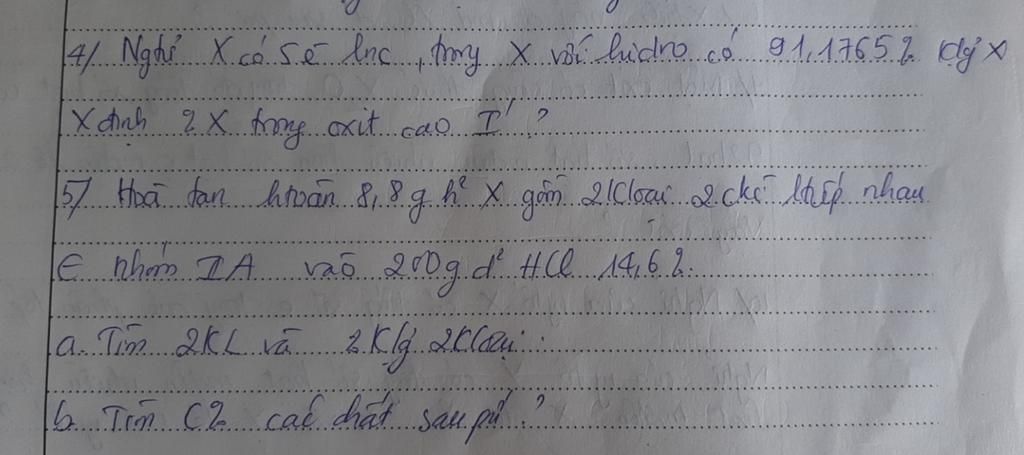 4/ Nghtử X có 5e lnc, trong X với hidro có 91,1765% klg X
Xđịnh % X trong oxit cao I ?
5/ Hoà tan htoàn 8,8g h² X gồm 2Kloại 2 ckì ltiếp nhau
∈ nhóm IA vào 200g d² HCl 14,6%.
a. Tìm 2KL và % Klg 2Kloại.
b. Tìm C% các chất sau pứ ?